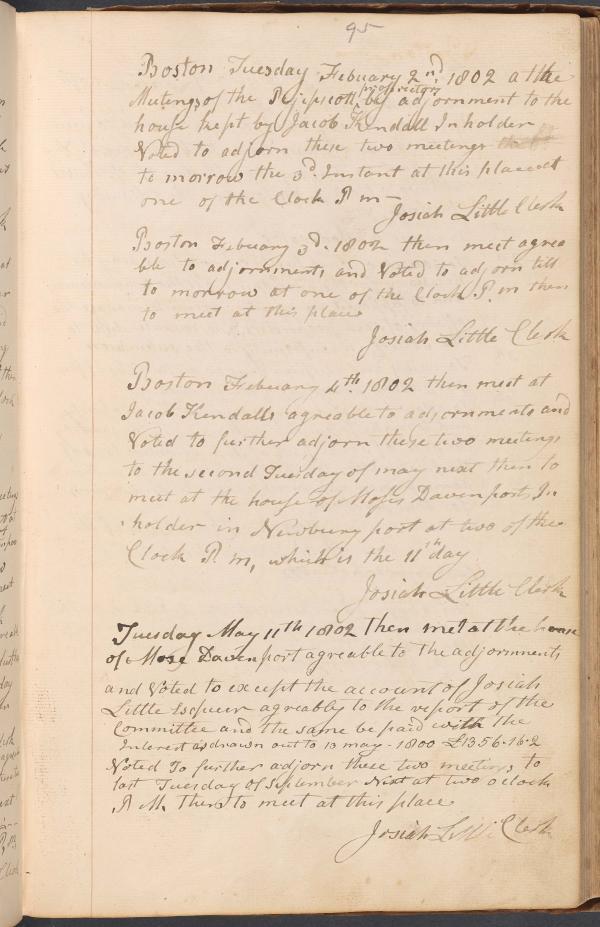 95
Boston Tuesday Febuary 2nd 1802 at the
Meetings of the Pejepscott proprietors by adjornment to the
house kept by Jacob Kendall Inholder
Voted to adjorn these two meetings
to morrow the 3d. Instant at this place at
one of the Clock P m
Josiah Little Clerk
Boston Febuary 3d. 1802 then meet agrea
ble to adjornments and Voted to adjorn till
to morrow at one of the Clock P. m then
to meet at this place
Josiah Little Clerk
Boston Febuary 4th. 1802 then meet at
Jacob Kendalls agreable to adjornments and
Voted to further adjorn these two meetings
to the second Tuesday of may next then to
meet at the house of Moses Davenport In
holder in Newbury port at two of the
Clock P. m, which is the 11th day
Josiah Little Clerk
Tuesday May 11th 1802 then met at the house
of Mose Davenport agreable to the adjornments
and Voted to except the account of Josiah
Little Esqueer agreably to the report of the
Committee and the same be paid with the
Interest as drawn out to 13 may - 1800 £1356.16.2
Voted To further adjorn these two meetings to
last Tuesday of September Next at two oclock
P. M. then to meet at this place
Josiah Little Clerk